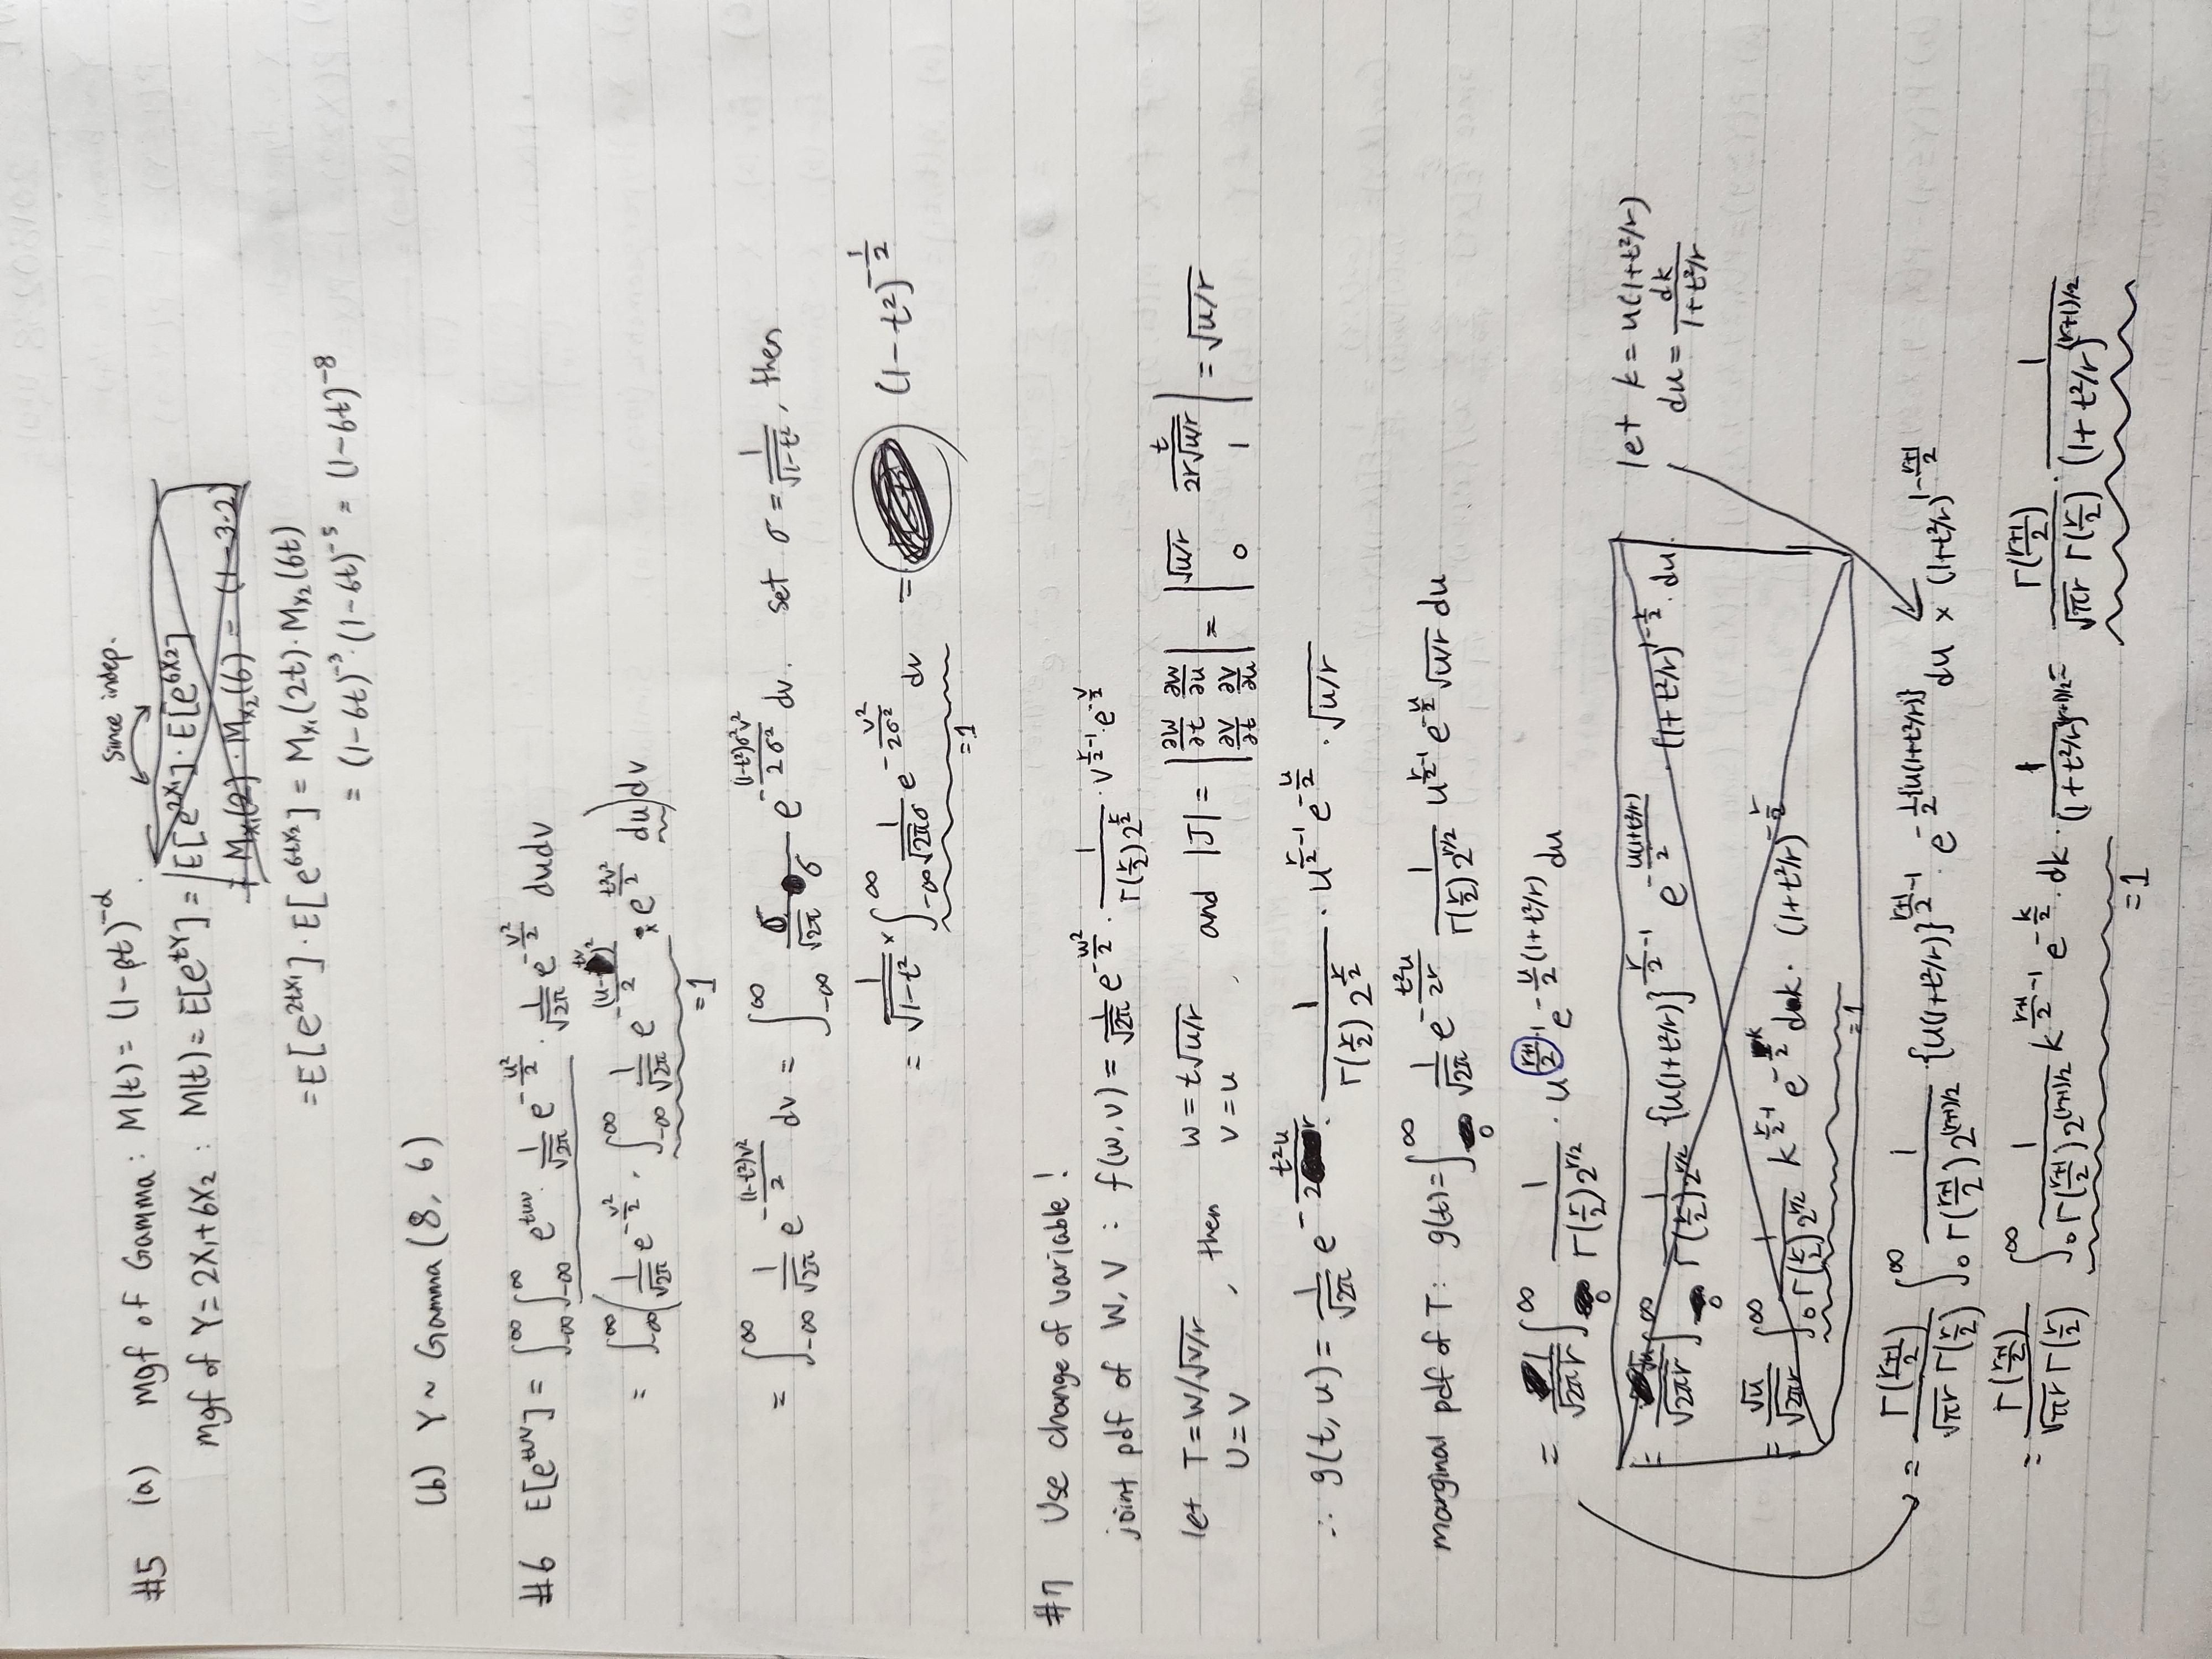 #5 (a) mgf of Gamma : M(t) = (1-βt)^{-α}
Since indep.
mgf of Y = 2X₁+6X₂ : M(t) = E[e^{tY}] = E[e^{2X₁}]·E[e^{6X₂}]
= M_{X₁}(2)·M_{X₂}(6) = (1-3·2)
= E[e^{2tX₁}]·E[e^{6tX₂}] = M_{X₁}(2t)·M_{X₂}(6t)
= (1-6t)^{-3}·(1-6t)^{-5} = (1-6t)^{-8}
(b) Y ~ Gamma (8, 6)
#6 E[e^{tuv}] = ∫_{-∞}^{∞}∫_{-∞}^{∞} e^{tuv}· 1/√2π e^{-u²/2}· 1/√2π e^{-v²/2} dudv
= ∫_{-∞}^{∞}( 1/√2π e^{-v²/2}· ∫_{-∞}^{∞} 1/√2π e^{-(u-tv)²/2} × e^{t²v²/2} du)dv
=1
= ∫_{-∞}^{∞} 1/√2π e^{-(1-t²)v²/2} dv = ∫_{-∞}^{∞} σ/√2π σ e^{-(1-t²)σ²v²/2σ²} dv. set σ = 1/√1-t², then
= 1/√1-t² × ∫_{-∞}^{∞} 1/√2πσ e^{-v²/2σ²} dv = (1-t²)^{-1/2}
=1
#7 Use change of variable!
joint pdf of W, V : f(w,v) = 1/√2π e^{-w²/2}· 1/Γ(r/2)2^{r/2} · v^{r/2-1}·e^{-v/2}
let T = W/√V/r , then w = t√u/r , and |J| = |∂w/∂t ∂w/∂u ∂v/∂t ∂v/∂u| = |√u/r t/2r√u/r 0 1| = √u/r
U = V v = u
∴ g(t,u) = 1/√2π e^{-t²u/2r}· 1/Γ(r/2)2^{r/2} · u^{r/2-1} e^{-u/2} · √u/r
marginal pdf of T : g(t) = ∫_0^∞ 1/√2π e^{-t²u/2r} 1/Γ(r/2)2^{r/2} u^{r/2-1} e^{-u/2} √u/r du
= 1/√2πr ∫_0^∞ 1/Γ(r/2)2^{r/2} · u^{(r+1)/2-1} e^{-u/2(1+t²/r)} du
= 1/√2πr ∫_0^∞ 1/Γ(r/2)2^{r/2} {u(1+t²/r)}^{r/2-1} e^{-u(1+t²/r)/2} · (1+t²/r)^{1-r/2} · du
let k = u(1+t²/r)
du = dk/1+t²/r
= √u/√2πr ∫_0^∞ 1/Γ(r/2)2^{r/2} k^{r/2-1} e^{-k/2} dk· (1+t²/r)^{-r/2}
=1
= Γ(r+1/2)/√πr Γ(r/2) ∫_0^∞ 1/Γ(r+1/2)2^{(r+1)/2} {u(1+t²/r)}^{r+1/2-1} · e^{-1/2{u(1+t²/r)}} du × (1+t²/r)^{1-r+1/2}
= Γ(r+1/2)/√πr Γ(r/2) ∫_0^∞ 1/Γ(r+1/2)2^{(r+1)/2} k^{r+1/2-1} e^{-k/2}·dk· 1/(1+t²/r)^{(r+1)/2} = Γ(r+1/2)/√πr Γ(r/2) · 1/(1+t²/r)^{(r+1)/2}
=1